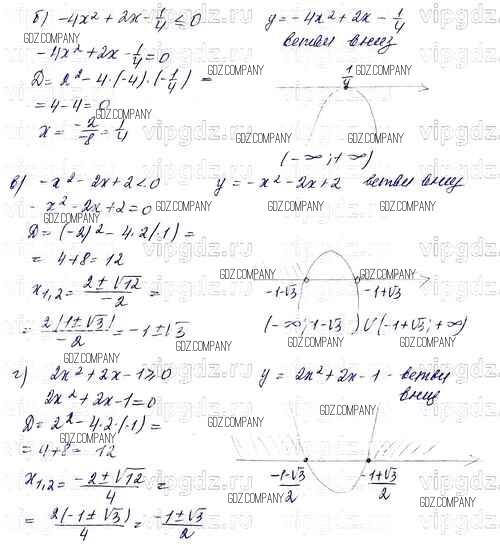 б) -4x² + 2x - 1/4 ≤ 0
y = -4x² + 2x - 1/4
ветви вниз
GDZ.COMPANY
-4x² + 2x - 1/4 = 0
Д = 2² - 4·(-4)·(-1/4) =
= 4 - 4 = 0
x = -2/-8 = 1/4
1/4
(-∞; +∞)
в) -x² - 2x + 2 < 0
y = -x² - 2x + 2 ветви вниз
-x² - 2x + 2 = 0
Д = (-2)² - 4·2(-1) =
= 4 + 8 = 12
x1,2 = 2±√12/-2 =
= 2(1±√3)/-2 = -1±√3
-1-√3
-1+√3
(-∞; 1-√3) ∪ (-1+√3; +∞)
г) 2x² + 2x - 1 ≥ 0
y = 2x² + 2x - 1 - ветви
вниз
2x² + 2x - 1 = 0
Д = 2² - 4·2·(-1) =
= 4 + 8 = 12
x1,2 = -2±√12/4 =
= 2(-1±√3)/4 = -1±√3/2
-1-√3/2
-1+√3/2
vipgdz.ru